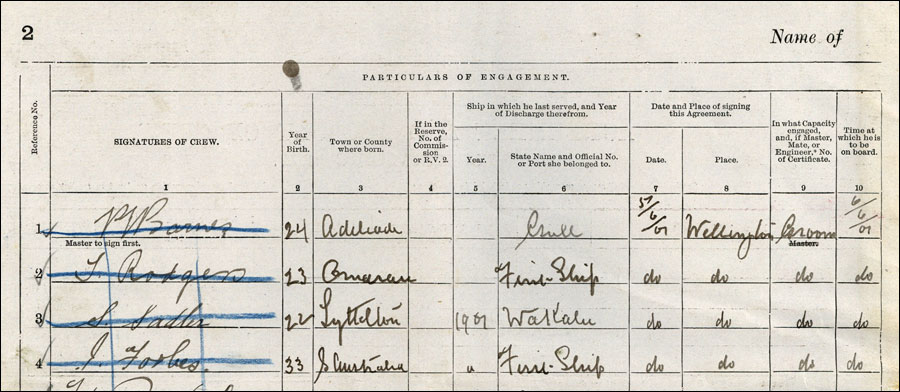 2 Name of
PARTICULARS OF ENGAGEMENT.
Reference No.
SIGNATURES OF CREW.
Year of Birth.
Town or County where born.
If in the Reserve, No. of Commission or R.V. 2.
Ship in which he last served, and Year of Discharge therefrom.
Year.
State Name and Official No. or Port she belonged to.
Date and Place of signing this Agreement.
Date.
Place.
In what Capacity engaged, and, if Master, Mate, or Engineer,* No. of Certificate.
Time at which he is to be on board.
1 2 3 4 5 6 7 8 9 10
1 Barnes 24 Adeliade 5/6/01 Wellington Groom 6/6/01
Master to sign first. Master.
2 Rodgers 23 First Ship do do do do
3 S. Sadler 22 Lyttelton 1901 do do do do
4 J. Forbes. 33 S Australia " First Ship do do do do